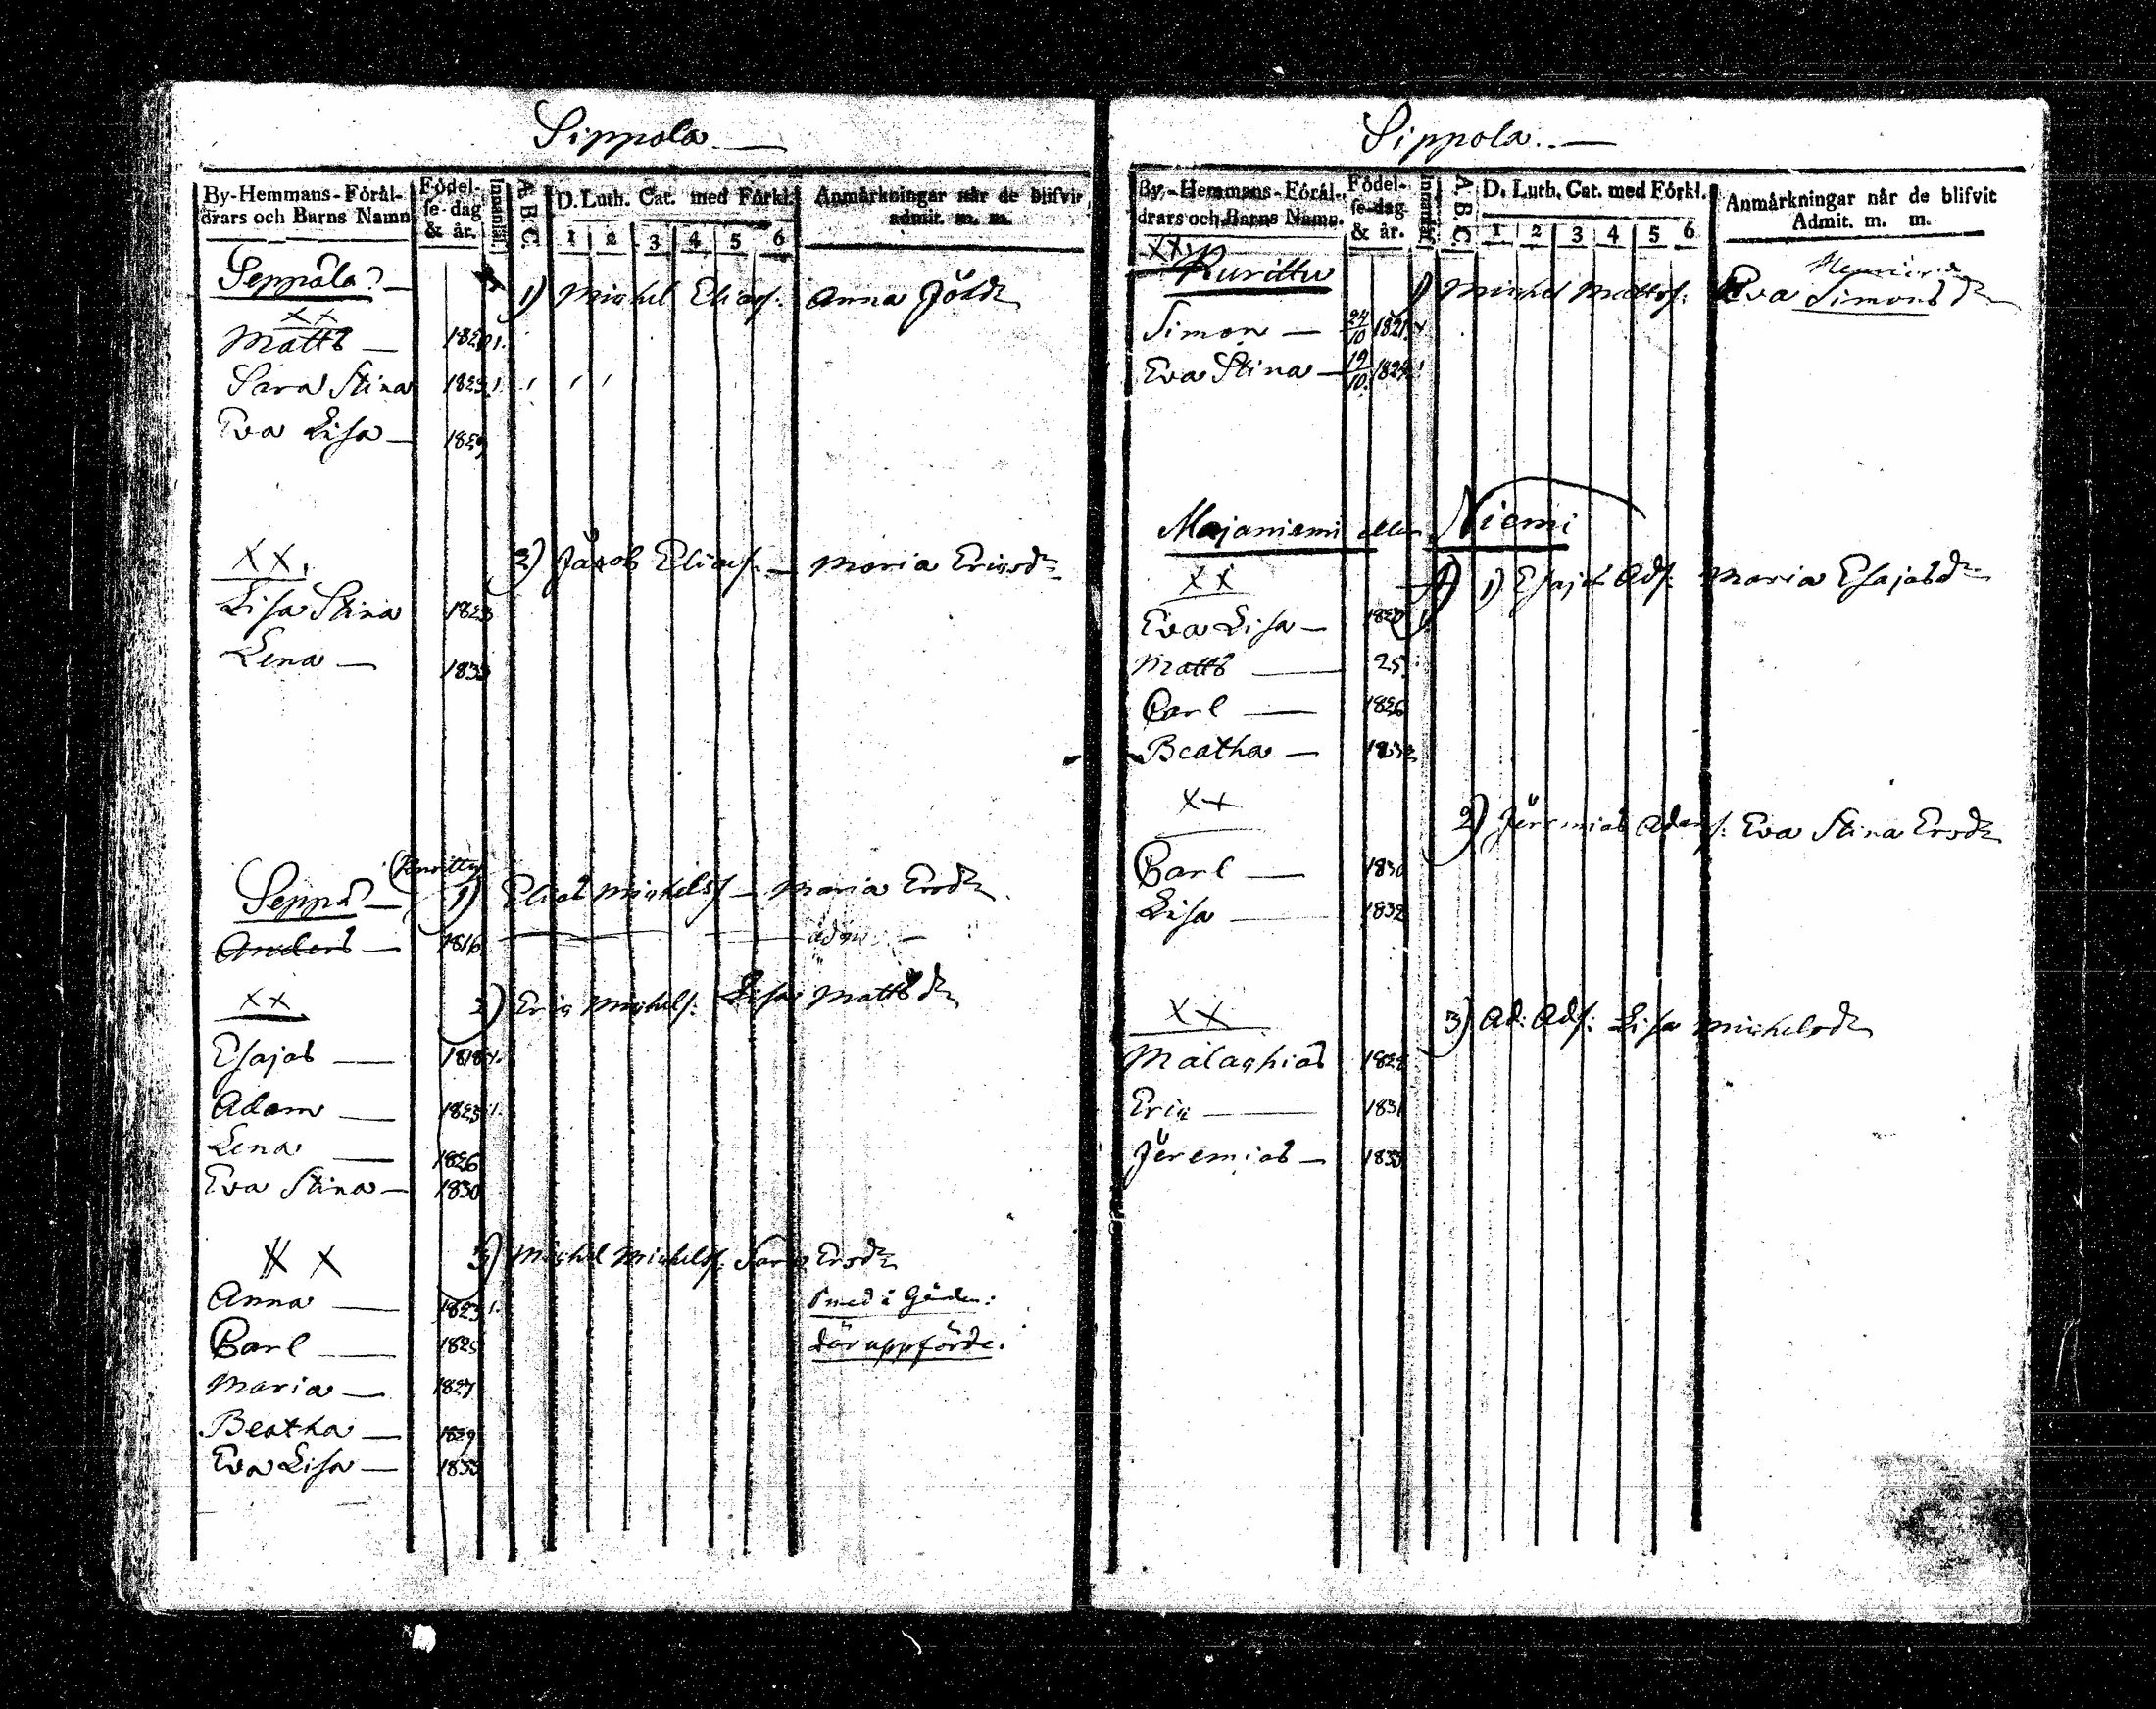 Sippola
By-Hemmans-Föräl-
drars och Barns Namn
Födel-
se-dag
& år.
Innanläs.
A B C
D. Luth. Cat. med Förkl.
1 2 3 4 5 6
Anmärkningar når de blifvit
admit. m. m.
Seppälä
1) Michel Eliass: Anna Johd
XX
Matts 1820
Sara Stina 1823
Eva Lisa 1829
XX 2) Jacob Eliass: Maria Ericsd
Lisa Stina
Lena 1833
Seppä 1) Elias Michelss Maria Ersd
Anders 1816
XX
2) Eric Michels: Lisa Mattsd
Esajas 1818
Adam 1823
Lena 1826
Eva Stina 1830
X X 3) Michel Michelss: Sara Ersd
Anna 1823
Carl 1825
där uppförde.
Maria 1827
Beatha 1829
Eva Lisa 1833
Sippola
By-Hemmans-Föräl-
drars och Barns Namn.
Födel-
se-dag
& år.
Innanläs.
A. B. C.
D. Luth. Cat. med Förkl.
1 2 3 4 5 6
Anmärkningar når de blifvit
Admit. m. m.
XX
Rurittu 1) Michel Mattss: Eva Simonsd
Simon 24/10 1821
Eva Stina 19/10 1824
Majaniemi eller Niemi
XX 1) Esajas Ads: Maria Esajasd
Eva Lisa
Matts 25
Carl 1826
Beatha 1832
XX
2) Jeremias Adams: Eva Stina Ersd
Carl 1830
Lisa 1832
XX 3) Ad: Ads: Lisa Michelsd
Malachias
Eric 1831
Jeremias 1833